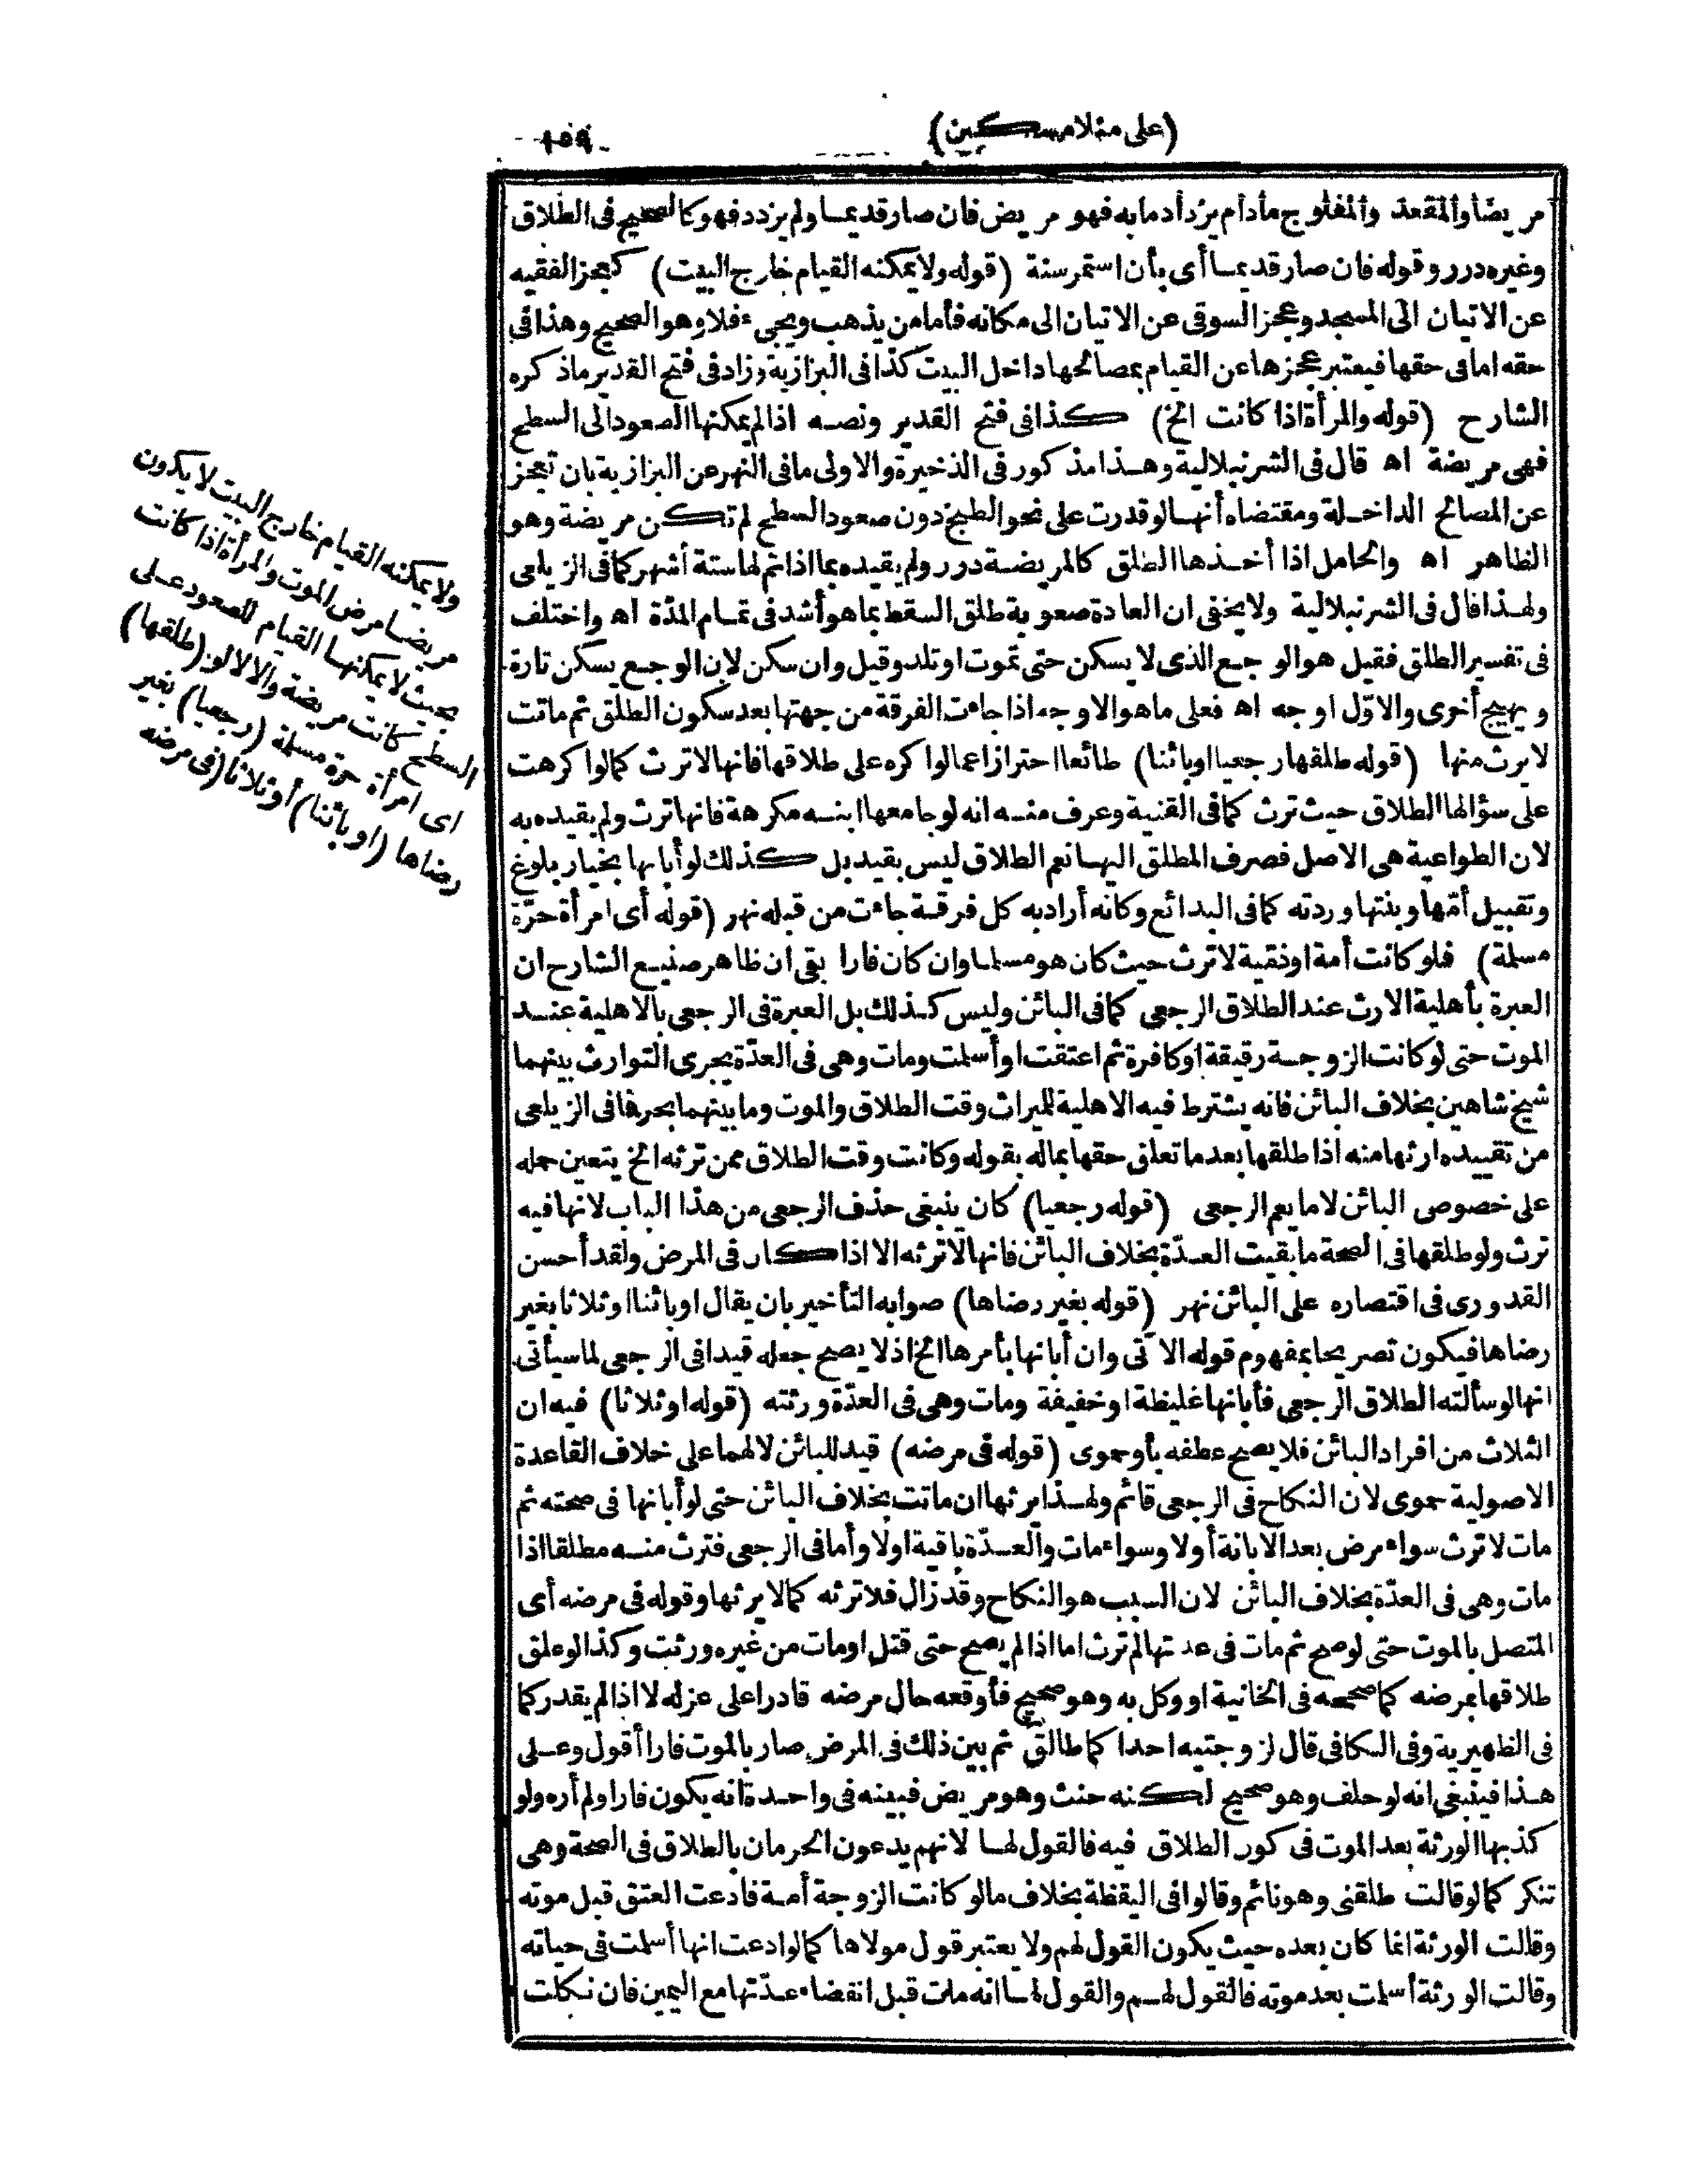 (على منلا مسكين)
١٥٩
مريضا والمقعد والمفلوج مادام يزداد ما به فهو مريض فان صار قديما ولم يزدد فهو كالصحيح فى الطلاق
وغيره درر وقوله فان صار قديما أى بأن استمر سنة (قوله ولا يمكنه القيام خارج البيت) كعجز الفقيه
عن الاتيان الى المسجد وعجز السوقى عن الاتيان الى مكانه فأما من يذهب ويجىء فلا وهو الصحيح وهذا فى
حقه اما فى حقها فيعتبر عجزها عن القيام بمصالحها داخل البيت كذا فى البزازية وزاد فى فتح القدير ماذكره
الشارح (قوله والمرأة اذا كانت الخ) كذا فى فتح القدير ونصه اذا لم يمكنها الصعود الى السطح
فهى مريضة اه قال فى الشرنبلالية وهذا مذكور فى الذخيرة والاولى ما فى النهر عن البزازية بان تعجز
عن المصالح الداخلة ومقتضاه أنها لو قدرت على نحو الطبخ دون صعود السطح لم تكن مريضة وهو
الظاهر اه والحامل اذا أخذها الطلق كالمريضة درر ولم يقيده بما اذا تم لها ستة أشهر كما فى الزيلعى
ولهذا قال فى الشرنبلالية ولا يخفى ان العادة صعوبة طلق السقط بما هو أشد فى تمام المدّة اه واختلف
فى تفسير الطلق فقيل هو الوجع الذى لا يسكن حتى تموت او تلد وقيل وان سكن لان الوجع يسكن تارة
ويهيج أخرى والاوّل اوجه اه فعلى ما هو الاوجه اذا جاءت الفرقة من جهتها بعد سكون الطلق ثم ماتت
لا يرث منها (قوله طلقها رجعيا او بائنا) طائعا احترازا عما لو اكره على طلاقها فانها لا ترث كما لو اكرهت
على سؤالها الطلاق حيث ترث كما فى القنية وعرف منه انه لو جامعها ابنه مكرهة فانها ترث ولم يقيده به
لان الطواعية هى الاصل فصرف المطلق اليها نعم الطلاق ليس بقيد بل كذلك لو أبانها بخيار بلوغ
وتقبيل أمّها وبنتها وردته كما فى البدائع وكانه أراد به كل فرقة جاءت من قبله نهر (قوله أى امرأة حرّة
مسلمة) فلو كانت أمة او ذمية لا ترث حيث كان هو مسلما وان كان فارا بقى ان ظاهر صنيع الشارح ان
العبرة بأهلية الارث عند الطلاق الرجعى كما فى البائن وليس كذلك بل العبرة فى الرجعى بالاهلية عند
الموت حتى لو كانت الزوجة رقيقة او كافرة ثم اعتقت او أسلمت ومات وهى فى العدّة يجرى التوارث بينهما
شيخ شاهين بخلاف البائن فانه يشترط فيه الاهلية للميراث وقت الطلاق والموت وما بينهما بحر فما فى الزيلعى
من تقييده ارثها منه اذا طلقها بعد ما تعلق حقها بماله بقوله وكانت وقت الطلاق ممن ترثه الخ يتعين حمله
على خصوص البائن لا ما يعم الرجعى (قوله رجعيا) كان ينبغى حذف الرجعى من هذا الباب لانها فيه
ترث ولو طلقها فى الصحة ما بقيت العدّة بخلاف البائن فانها لا ترثه الا اذا كان فى المرض ولقد أحسن
القدورى فى اقتصاره على البائن نهر (قوله بغير رضاها) صوابه التأخير بان يقال او بائنا او ثلاثا بغير
رضاها فيكون تصريحا بمفهوم قوله الآتى وان أبانها بأمرها الخ اذ لا يصح جعله قيدا فى الرجعى لما سيأتى
انها لو سألته الطلاق الرجعى فأبانها غليظة او خفيفة ومات وهى فى العدّة ورثته (قوله او ثلاثا) فيه ان
الثلاث من افراد البائن فلا يصح عطفه بأو حموى (قوله فى مرضه) قيد للبائن لا لهما على خلاف القاعدة
الاصولية حموى لان النكاح فى الرجعى قائم ولهذا يرثها ان ماتت بخلاف البائن حتى لو أبانها فى صحته ثم
مات لا ترث سواء مرض بعد الابانة أولا وسواء مات والعدّة باقية اولا وأما فى الرجعى فترث منه مطلقا اذا
مات وهى فى العدّة بخلاف البائن لان السبب هو النكاح وقد زال فلا ترثه كما لا يرثها وقوله فى مرضه أى
المتصل بالموت حتى لو صح ثم مات فى عدتها لم ترث اما اذا لم يصح حتى قتل او مات من غيره ورثت وكذا لو علق
طلاقها بمرضه كما صححه فى الخانية او وكل به وهو صحيح فأوقعه حال مرضه قادرا على عزله لا اذا لم يقدر كما
فى الظهيرية وفى الكافى قال لزوجتيه احداكما طالق ثم بين ذلك فى المرض صار بالموت فارا أقول وعلى
هذا فينبغى انه لو حلف وهو صحيح لكنه حنث وهو مريض فبينه فى واحدة انه يكون فارا ولم أره ولو
كذبها الورثة بعد الموت فى كور الطلاق فيه فالقول لها لانهم يدعون الحرمان بالطلاق فى الصحة وهى
تنكر كما لو قالت طلقنى وهو نائم وقالوا فى اليقظة بخلاف ما لو كانت الزوجة أمة فادعت العتق قبل موته
وقالت الورثة انما كان بعده حيث يكون القول لهم ولا يعتبر قول مولاها كما لو ادعت انها أسلمت فى حياته
وقالت الورثة أسلمت بعد موته فالقول لهم والقول لها انه مات قبل انقضاء عدّتها مع اليمين فان نكلت
ولا يمكنه القيام خارج البيت لا يكون
مريضا مرض الموت والمرأة اذا كانت
بحيث لا يمكنها القيام للصعود على
السطح كانت مريضة والا لا لو (طلقها)
اى امرأة حرة مسلمة (رجعيا) بغير
رضاها (او بائنا) أو ثلاثا (فى مرضه